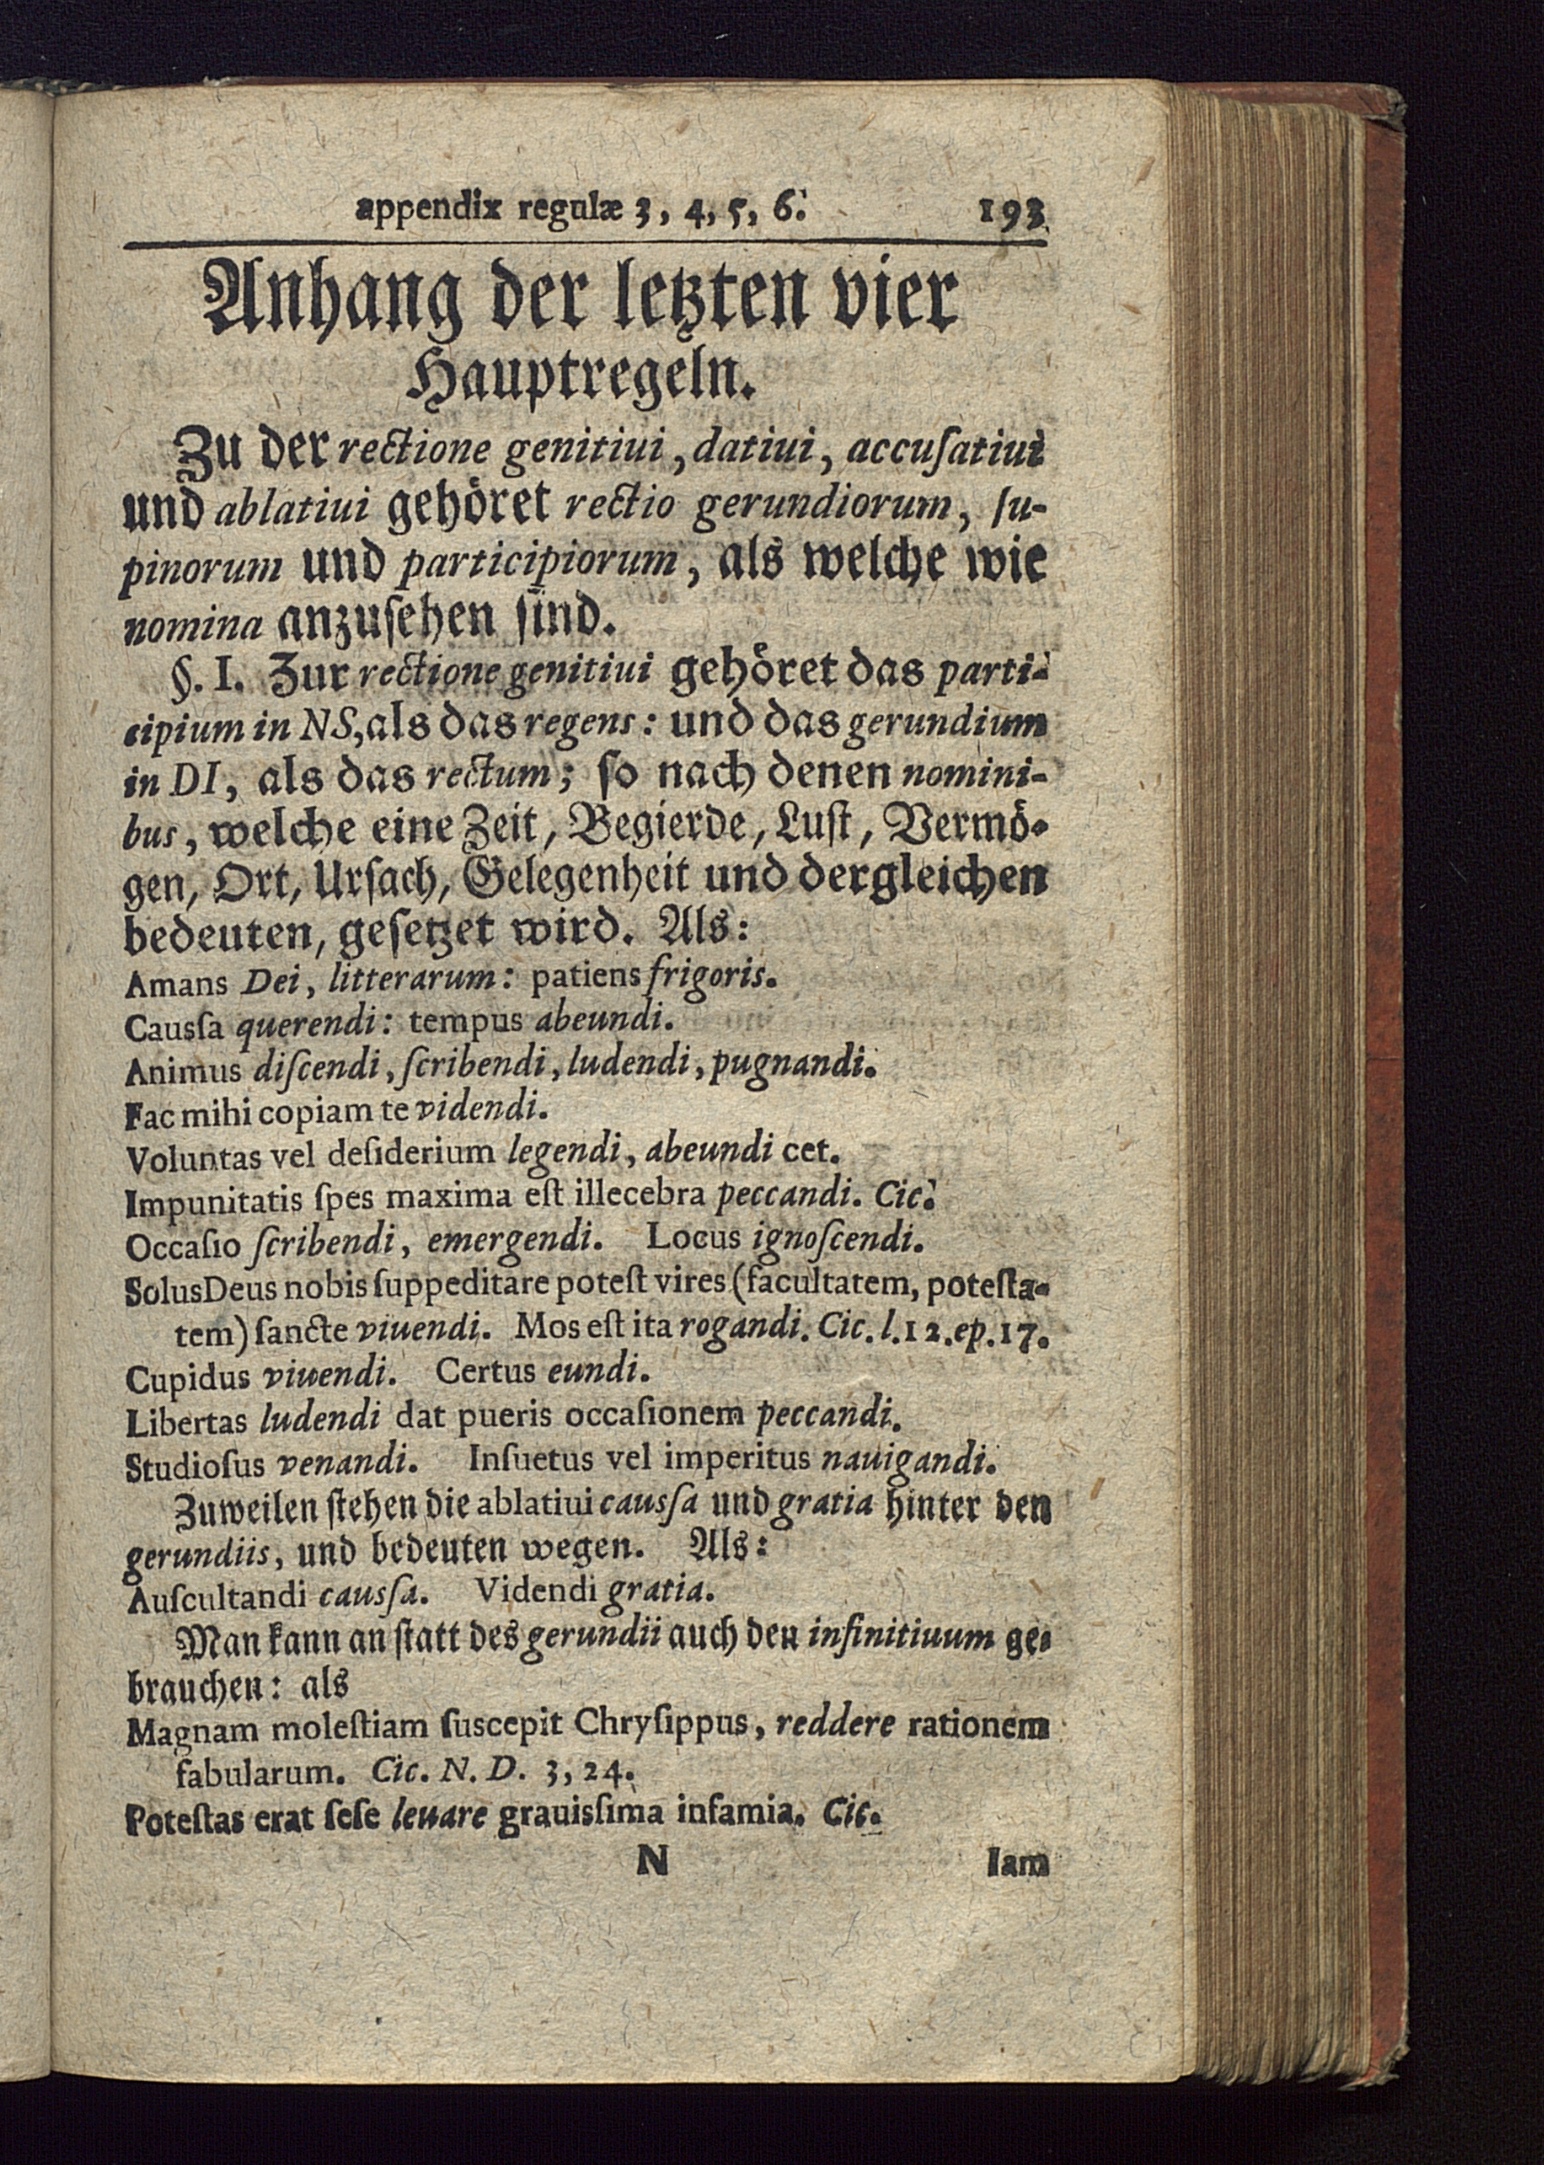 appendix regulæ 3, 4, 5, 6. 193
Anhang der letzten vier
Hauptregeln.
Zu der rectione genitiui, datiui, accuſatiui
und ablatiui gehöret rectio gerundiorum, ſu-
pinorum und participiorum, als welche wie
nomina anzuſehen ſind.
§. I. Zur rectione genitiui gehöret das parti-
cipium in NS, als das regens: und das gerundium
in DI, als das rectum; ſo nach denen nomini-
bus, welche eine Zeit, Begierde, Luſt, Vermö-
gen, Ort, Urſach, Gelegenheit und dergleichen
bedeuten, geſetzet wird. Als:
Amans Dei, litterarum: patiens frigoris.
Causſa querendi: tempus abeundi.
Animus diſcendi, ſcribendi, ludendi, pugnandi.
Fac mihi copiam te videndi.
Voluntas vel deſiderium legendi, abeundi cet.
Impunitatis ſpes maxima eſt illecebra peccandi. Cic.
Occaſio ſcribendi, emergendi. Locus ignoſcendi.
Solus Deus nobis ſuppeditare poteſt vires (facultatem, poteſta-
tem) ſancte viuendi. Mos eſt ita rogandi. Cic. l. 12. ep. 17.
Cupidus viuendi. Certus eundi.
Libertas ludendi dat pueris occaſionem peccandi.
Studioſus venandi. Inſuetus vel imperitus nauigandi.
Zuweilen ſtehen die ablatiui causſa und gratia hinter den
gerundiis, und bedeuten wegen. Als:
Auſcultandi causſa. Videndi gratia.
Man kann an ſtatt des gerundii auch den infinitiuum ge-
brauchen: als
Magnam moleſtiam ſuscepit Chryſippus, reddere rationem
fabularum. Cic. N. D. 3, 24.
Poteſtas erat ſeſe leuare grauisſima infamia. Cic.
N Iam